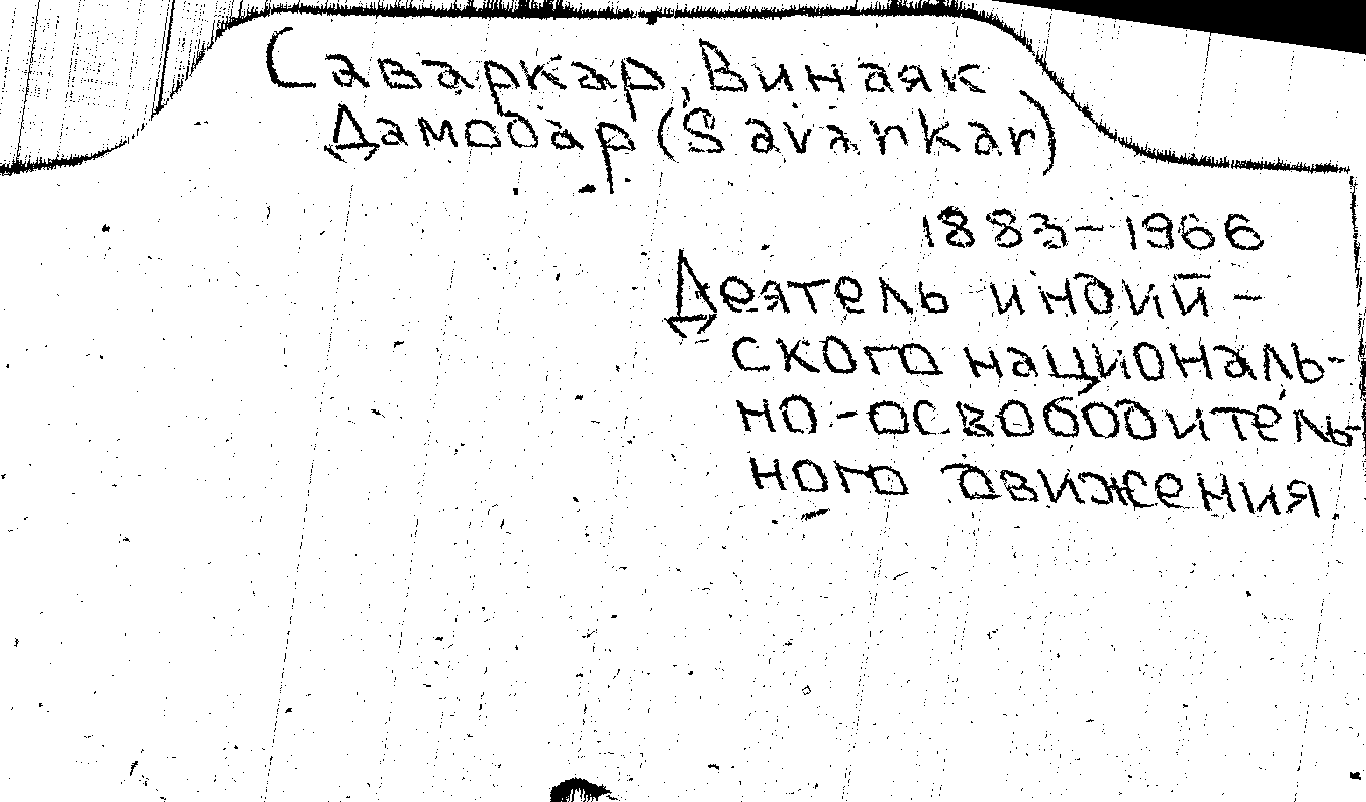 Саваркар, Винаяк
Дамодар (Savarkar)
1883-1966
Деятель индий-
ского националь-
но-освободитель-
ного движения